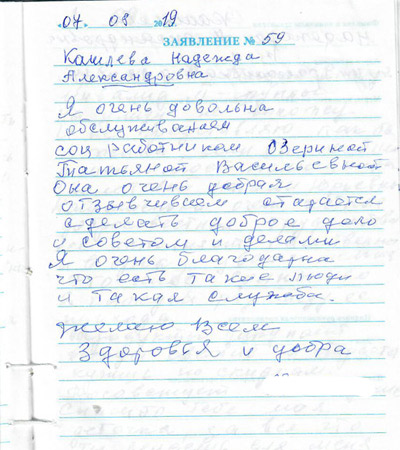 «07» 08 2019
ЗАЯВЛЕНИЕ № 59
Кашлева Надежда
Александровна
Я очень довольна
обслуживанием
соц работником Озериной
Татьяной Васильевной
Она очень добрая
отзывчивием старается
сделать доброе дело
и советом и делами
Я очень благодарна
что есть такие люди
и такая служба.
Желаю Всем
Здоровья и добра